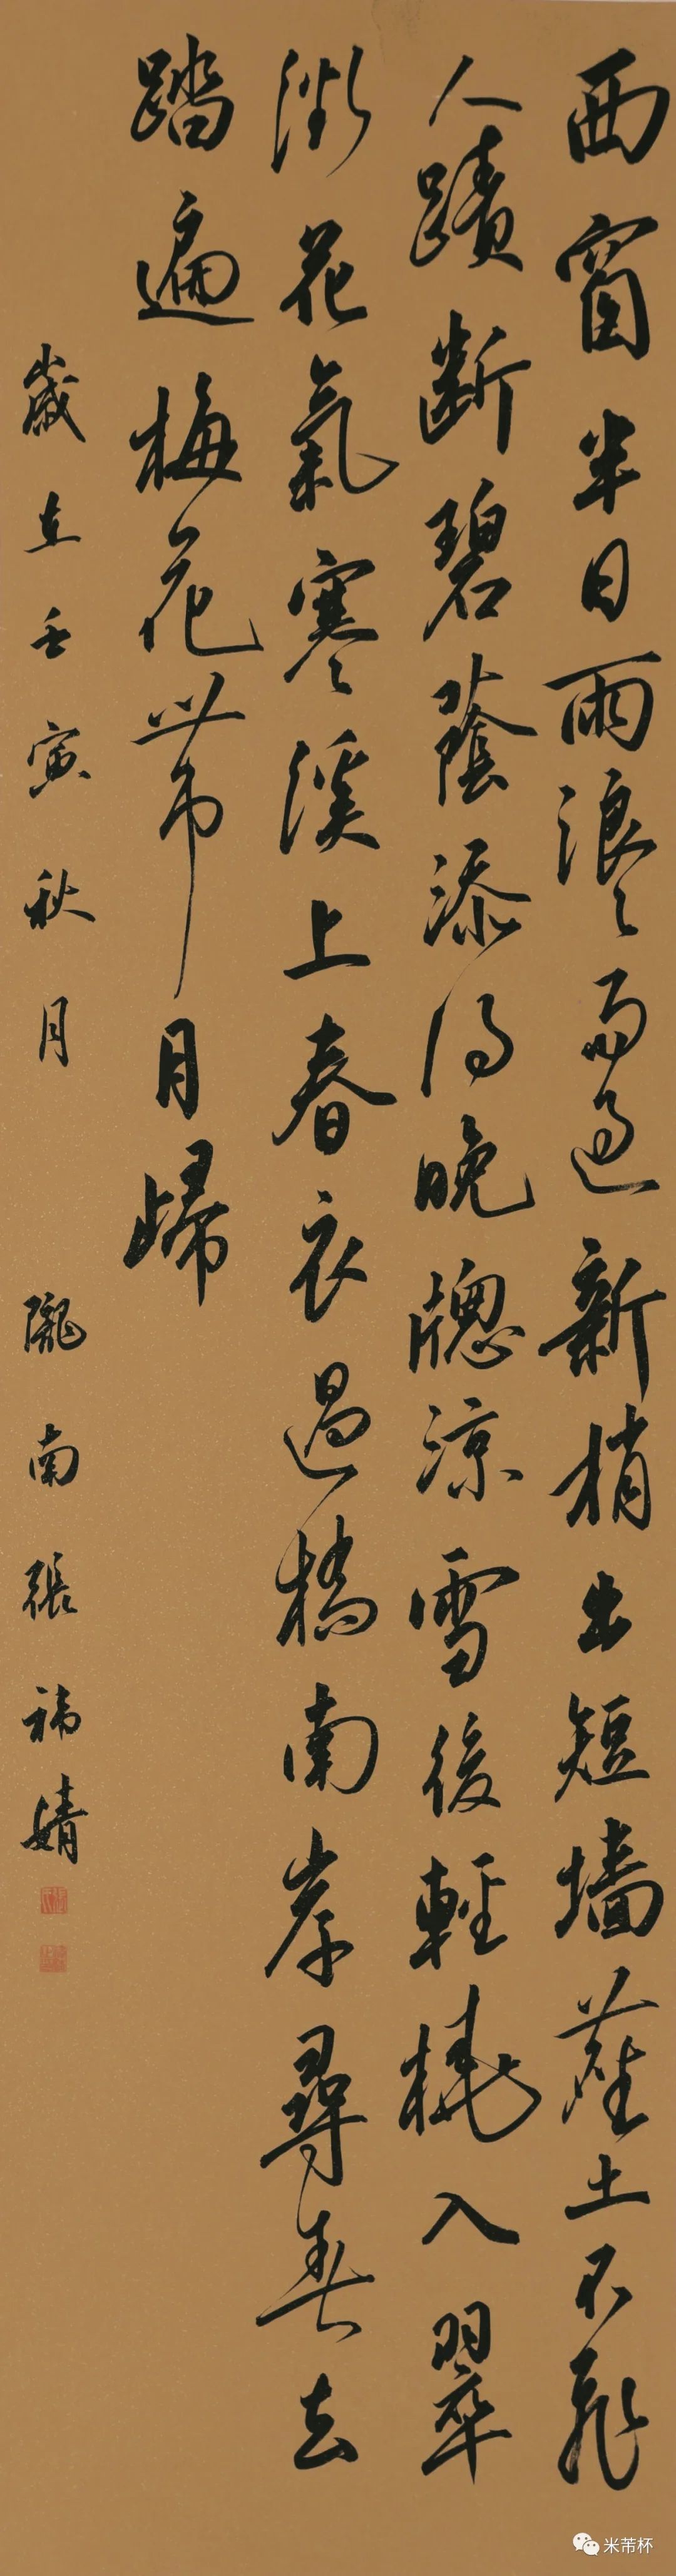 西窗半日雨浪浪雨過新梢出短墙塵土不飛
人蹟斷碧蔭添得晚牕涼雪後輕橈入翠
微花氣寒寒溪上春衣過橋南岸尋春去
踏遍梅花帶月歸
歲在壬寅秋月 隴南張禕婧
米芾杯